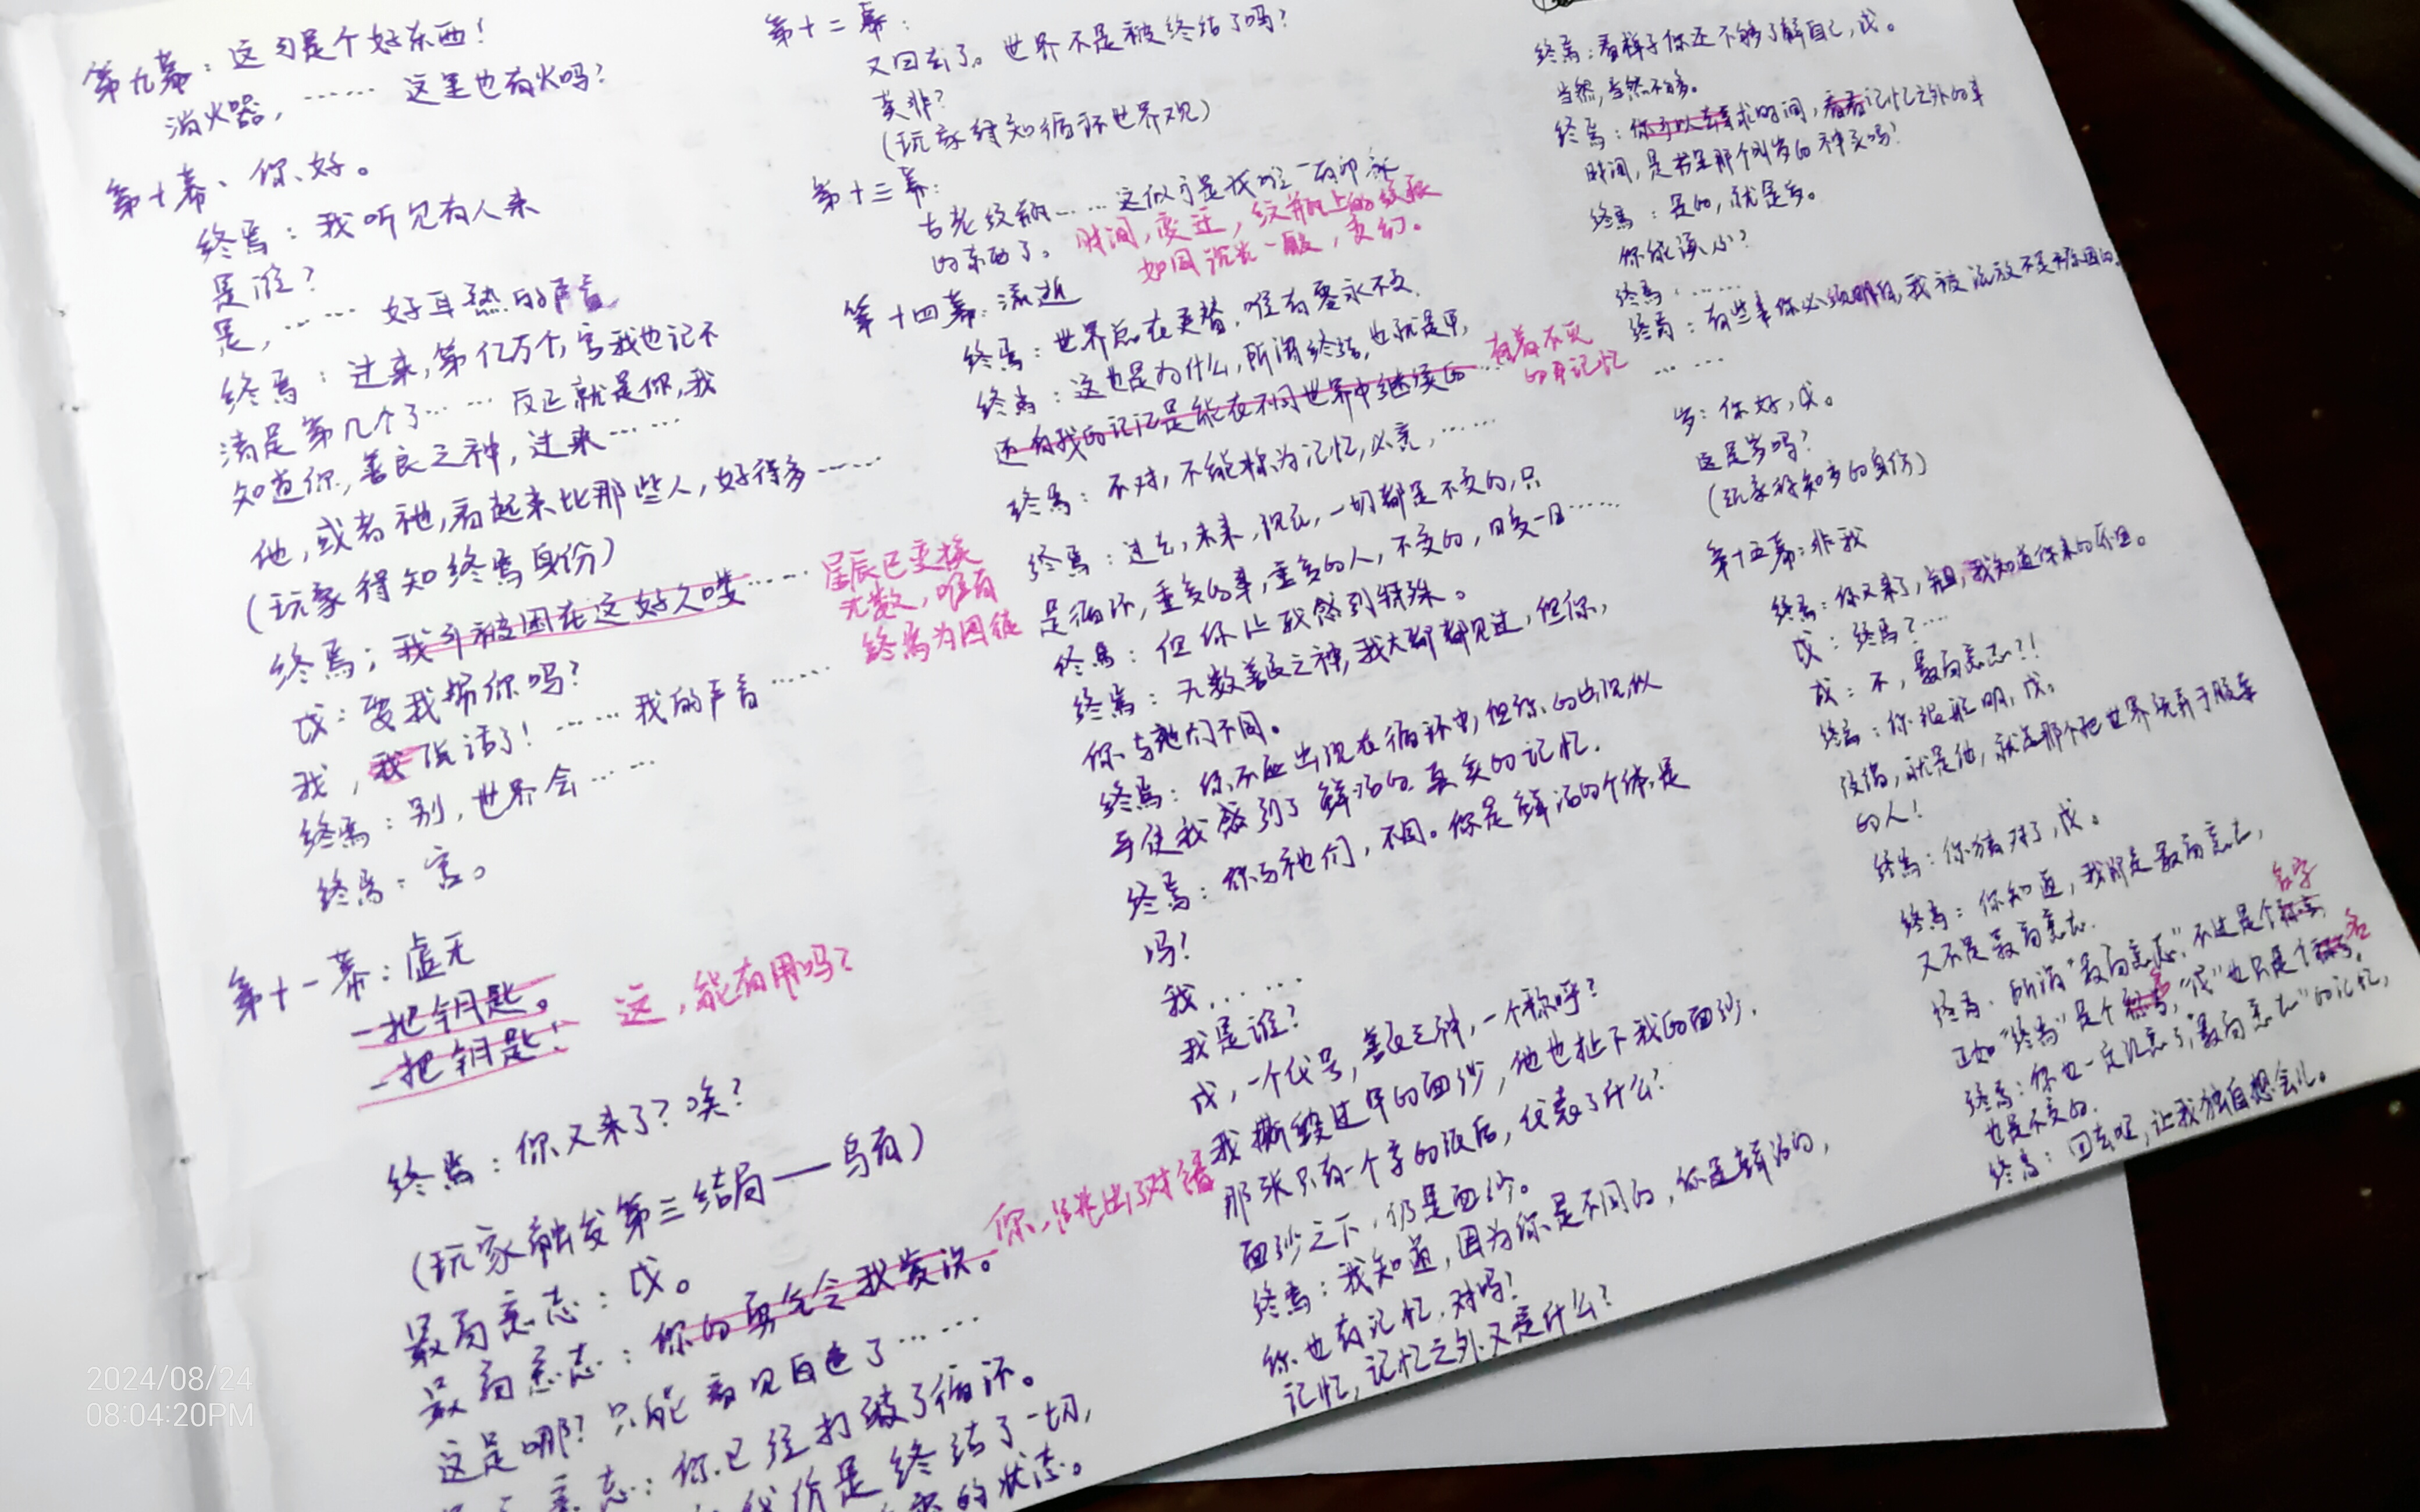 第九幕：这可是个好东西！
消火器，…… 这里也有火吗？
第十幕、你好。
终焉：我听见有人来
是谁？
是，…… 好耳熟的声音
终焉：过来，第亿万个，害我也记不
清是第几个了…… 反正就是你，我
知道你，善良之神，过来……
他，或者祂，看起来比那些人，好得多……
（玩家得知终焉身份）
终焉：我可被困在这好久喽……
星辰已变换
无数，唯有
终焉为囚徒
戊：要我帮你吗？
我，我说话了！…… 我的声音……
终焉：别，世界会……
终焉：害。
第十一幕：虚无
一把钥匙。
一把钥匙！
这，能有用吗？
终焉：你又来了？唉？
（玩家触发第三结局——乌有）
最高意志：戊。
最高意志：你的勇气令我赞叹。
你，跳出了对错
这是哪？只能看见白色了……
意志：你已经打破了循环。
代价是终结了一切，
的状态。
第十二幕：
又回去了。世界不是被终结了吗？
莫非？
（玩家得知循环世界观）
第十三幕：
古老纹柄…… 这似乎是我唯一有印象
的东西了。
时间，变迁，纹柄上的
如同 一般，
第十四幕：流逝
终焉：世界总在更替，唯有 永不变，
终焉：这也是为什么，所谓终结，也就是 ，
还有我的记忆是能在不同世界中继续的……
有着不灭
的 记忆
终焉：不对，不能称为记忆，必竟，……
终焉：过去，未来，现在，一切都是不变的，只
是循环，重复的事，重复的人，不变的，日复一日……
终焉：但你让我感到特殊。
终焉：无数善良之神，我大都都见过，但你，
你与祂们不同。
终焉：你不应出现在循环中，但你的出现，似
乎使我感到了鲜活的、真实的记忆.
终焉：你与祂们，不同。你是鲜活的个体，是
吗！
我，……
我是谁？
戊，一个代号，善良之神，一个称呼？
我撕毁过 的面纱，他也扯下我的面纱.
那张只有一个字的纸后，代表了什么？
面纱之下，仍是面纱。
终焉：我知道，因为你是不同的，你是鲜活的，
你也有记忆，对吗！
记忆，记忆之外又是什么？
终焉：看样子你还不够了解自己，戊。
当然，当然不够。
终焉：你可以去 求时间，看看记忆之外的事
时间，是 那个叫岁的神灵吗？
终焉：是的，就是岁。
你能 ？
终焉：……
终焉：有些事你必须明白，我被流放不是 原因的。
……
岁：你好，戊。
这是岁吗？
（玩家得知岁的身份）
第十五幕：非我
终焉：你又来了，且，我知道你来的原因。
戊：终焉？…
戊：不，最高意志？！
终焉：你很聪明，戊。
没错，就是他，就是那个把世界玩弄于股掌
的人！
终焉：你猜对了，戊。
终焉：你知道，我即是最高意志，
又不是最高意志.
终焉：所谓“最高意志”，不过是个名字
正如“终焉”是个 名，“戊”也只是个 名
终焉：你也一定 了“最高意志”的记忆，
也是不变的.
终焉：回去吧，让我独自想会儿。
2024/08/24
08:04:20PM